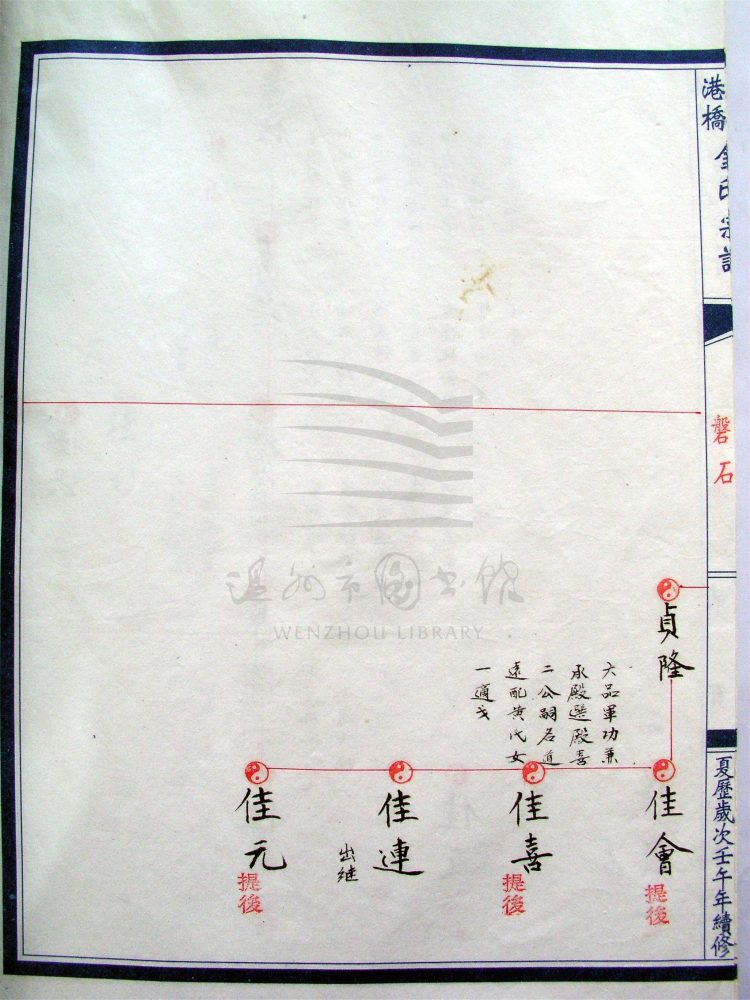 港橋 金氏宗譜
磐石
夏歷歲次壬午年續修
貞隆
六品軍功兼
承殿選殿喜
二公嗣名道
遠配黄氏女
一適戈
佳會
提後
佳喜
提後
佳連
出继
佳元
提後
温州市图书馆
WENZHOU LIBRARY